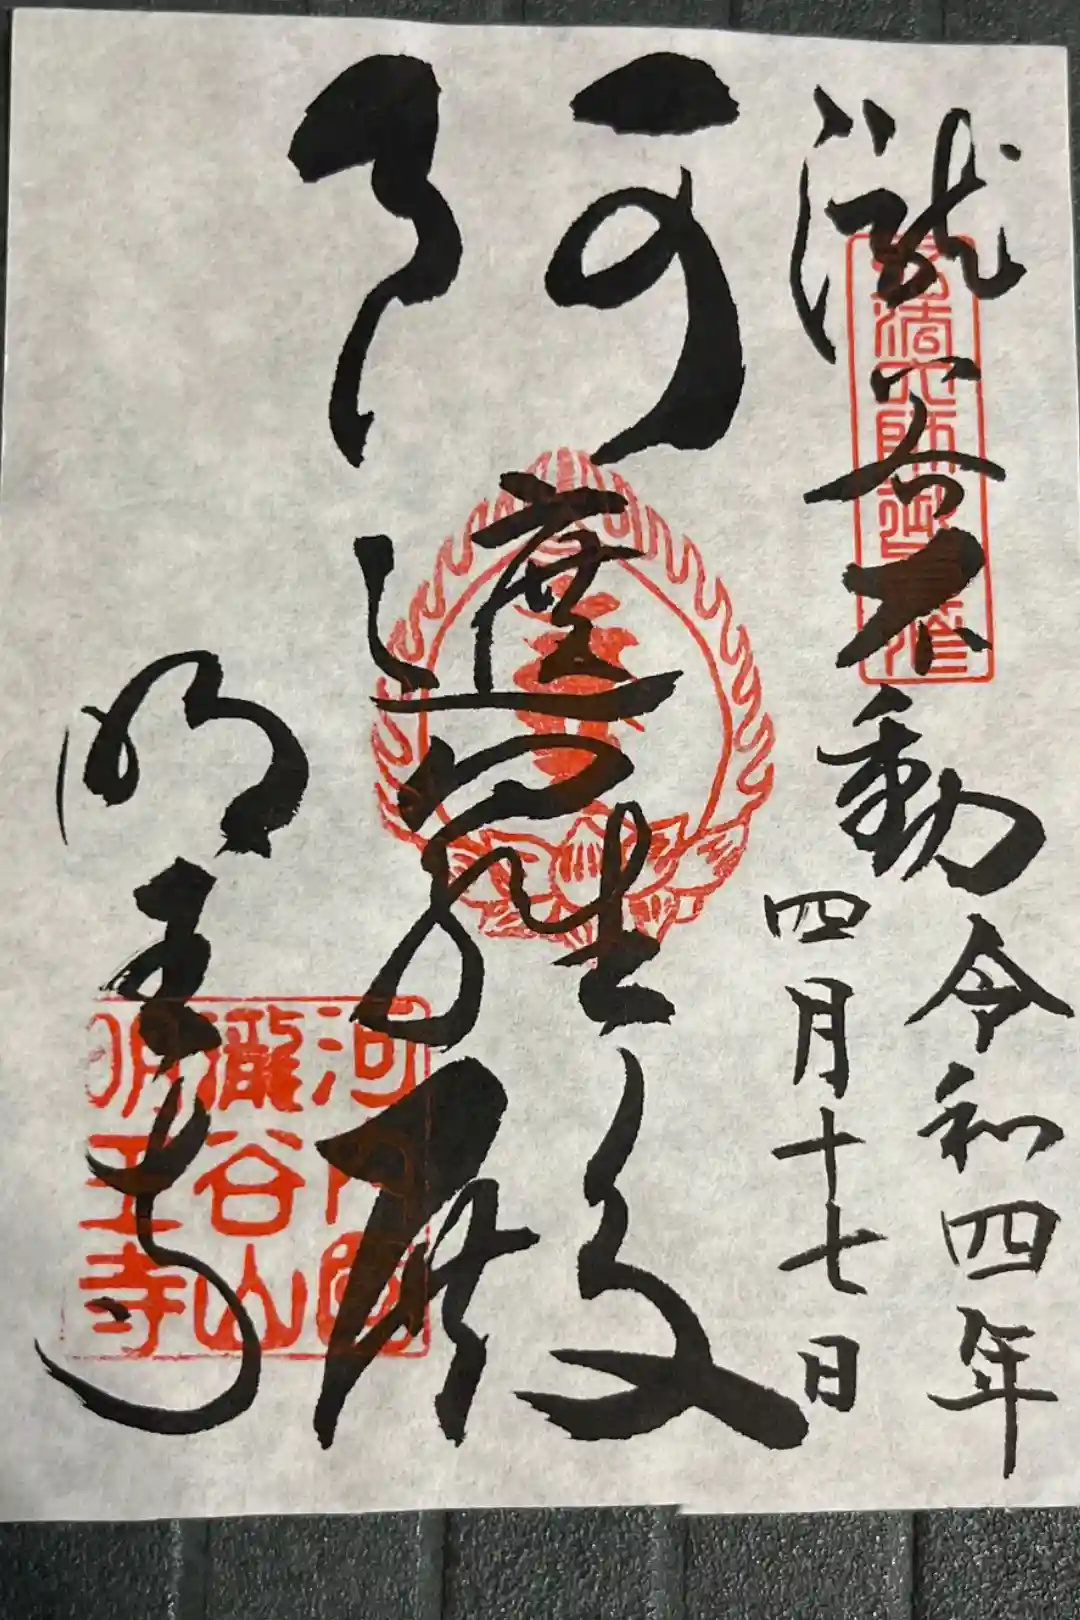 瀧谷不動
令和四年
四月十七日
阿遮羅殿
明王寺
弘法大師御
河内國
瀧谷山
明王寺